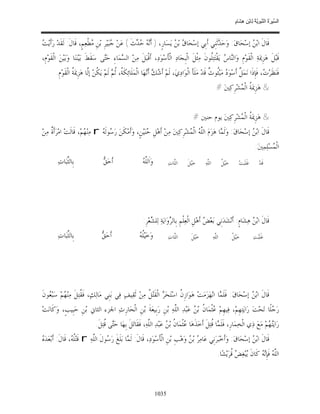 السّيرَةُ النَّبَويَّةُ لابن هشام
قَالَ ابْنُ إسْحَاقَ: وَحَدَّثَنِي أَبِي إسْحَاقُ بْنُ يَسَارٍ، ( أَنَّهُ حُدِّثَ ) عَنْ جُبَيْرِ بْنِ مُطْعِمٍ، قَالَ: لَقَدْ رَأَيْتُ
قَبْلَ هَزِيمَةِ الْقَوْمِ وَالنَّاسُ يَقْتَتِلُونَ مِثْلَ الْبِجَادِ الْأَسْوَدِ، أَقْبَلَ مِنْ السَّمَاءِ حَتَّى سَقَطَ بَيْنَنَا وَبَيْنَ الْقَوْمِ،
فَنَظَرْتُ، فَإِذَا نَمْلٌ أَسْوَدُ مَبْثُوثٌ قَدْ مَلَأَ الْوَادِيَ، لَمْ أَشُكَّ أَنَّهَا الْمَلَائِكَةُ، ثُمَّ لَمْ يَكُنْ إلَّا هَزِيمَةُ الْقَوْمِ
& هَزِيمَةُ الْمُشْرِكِينَ #
& هَزِيمَةُ الْمُشْرِكِينَ يوم حنين #
قَالَ ابْنُ إسْحَاقَ: وَلَمَّا هَزَمَ اللَّهُ الْمُشْرِكِينَ مِنْ أَهْلِ حُنَيْنٍ، وَأَمْكَنَ رَسُولَهُ r مِنْهُمْ، قَالَتْ امْرَأَةٌ مِنْ
الْمُسْلِمِينَ:
قَدْ غَلَبَتْ خَيْلُ اللَّهِ خَيْلَ اللَّاتِ وَاَللَّهُ أَحَقُّ بِالثَّبَاتِ
قَالَ ابْنُ هِشَامٍ: أَنْشَدَنِي بَعْضُ أَهْلِ الْعِلْمِ بِالرِّوَايَةِ لِلشِّعْرِ:
غَلَبَتْ خَيْلُ اللَّهِ خَيْلَ اللَّاتِ وَخَيْلُهُ أَحَقُّ بِالثَّبَاتِ
قَالَ ابْنُ إسْحَاقَ: فَلَمَّا انْهَزَمَتْ هَوَازِنُ اسْتَحَرَّ الْقَتْلُ مِنْ ثَقِيفٍ فِي بَنِي مَالِكٍ، فَقُتِلَ مِنْهُمْ سَبْعُونَ
رَجُلًا تَحْتَ رَايَتِهِمْ، فِيهِمْ عُثْمَانُ بْنُ عَبْدِ اللَّهِ بْنِ رَبِيعَةَ بْنِ الْحَارِثِ الجزء الثاني بْنِ حَبِيبٍ، وَكَانَتْ
رَايَتُهُمْ مَعَ ذِي الْخِمَارِ، فَلَمَّا قُتِلَ أَخَذَهَا عُثْمَانُ بْنُ عَبْدِ اللَّهِ، فَقَاتَلَ بِهَا حَتَّى قُتِلَ
قَالَ ابْنُ إسْحَاقَ: وَأَخْبَرَنِي عَامِرُ بْنُ وَهْبِ بْنِ الْأَسْوَدِ، قَالَ: لَمَّا بَلَغَ رَسُولَ اللَّهِ r قَتْلُهُ، قَالَ: أَبْعَدَهُ
اللَّهُ فَإِنَّهُ كَانَ يُبْغِضُ قُرَيْشًا
1035